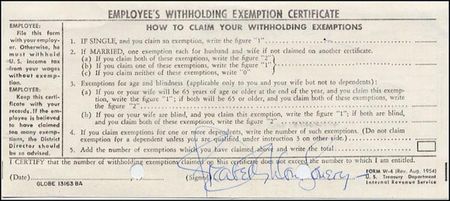 EMPLOYEE'S WITHHOLDING EXEMPTION CERTIFICATE
HOW TO CLAIM YOUR WITHHOLDING EXEMPTIONS
EMPLOYEE:
File this form
with your employ-
er. Otherwise, he
must withhold
U. S. income tax
from your wages
without exemp-
tion.
EMPLOYER:
Keep this cer-
tificate with your
records. If the em-
ployee is believed
to have claimed
too many exemp-
tions, the District
Director should
be so advised.
1. IF SINGLE, and you claim an exemption, write the figure "1"
2. If MARRIED, one exemption each for husband and wife if not claimed on another certificate.
(a) If you claim both of these exemptions, write the figure "2"
(b) If you claim one of these exemptions, write the figure "1"
(c) If you claim neither of these exemptions, write "0"
3. Exemptions for age and blindness (applicable only to you and your wife but not to dependents):
(a) If you or your wife will be 65 years of age or older at the end of the year, and you claim this exemp-
tion, write the figure "1"; if both will be 65 or older, and you claim both of these exemptions, write
the figure "2"
(b) If you or your wife are blind, and you claim this exemption, write the figure "1"; if both are blind,
and you claim both of these exemptions, write the figure "2"
4. If you claim exemptions for one or more dependents, write the number of such exemptions. (Do not claim
exemption for a dependent unless you are qualified under instruction 5 on other side.)
5. Add the number of exemptions which you have claimed above and write the total
I CERTIFY that the number of withholding exemptions claimed on this certificate does not exceed the number to which I am entitled.
(Date) (Signed)
GLOBE 13163 BA
FORM W-4 (Rev. Aug. 1954)
U. S. Treasury Department
Internal Revenue Service